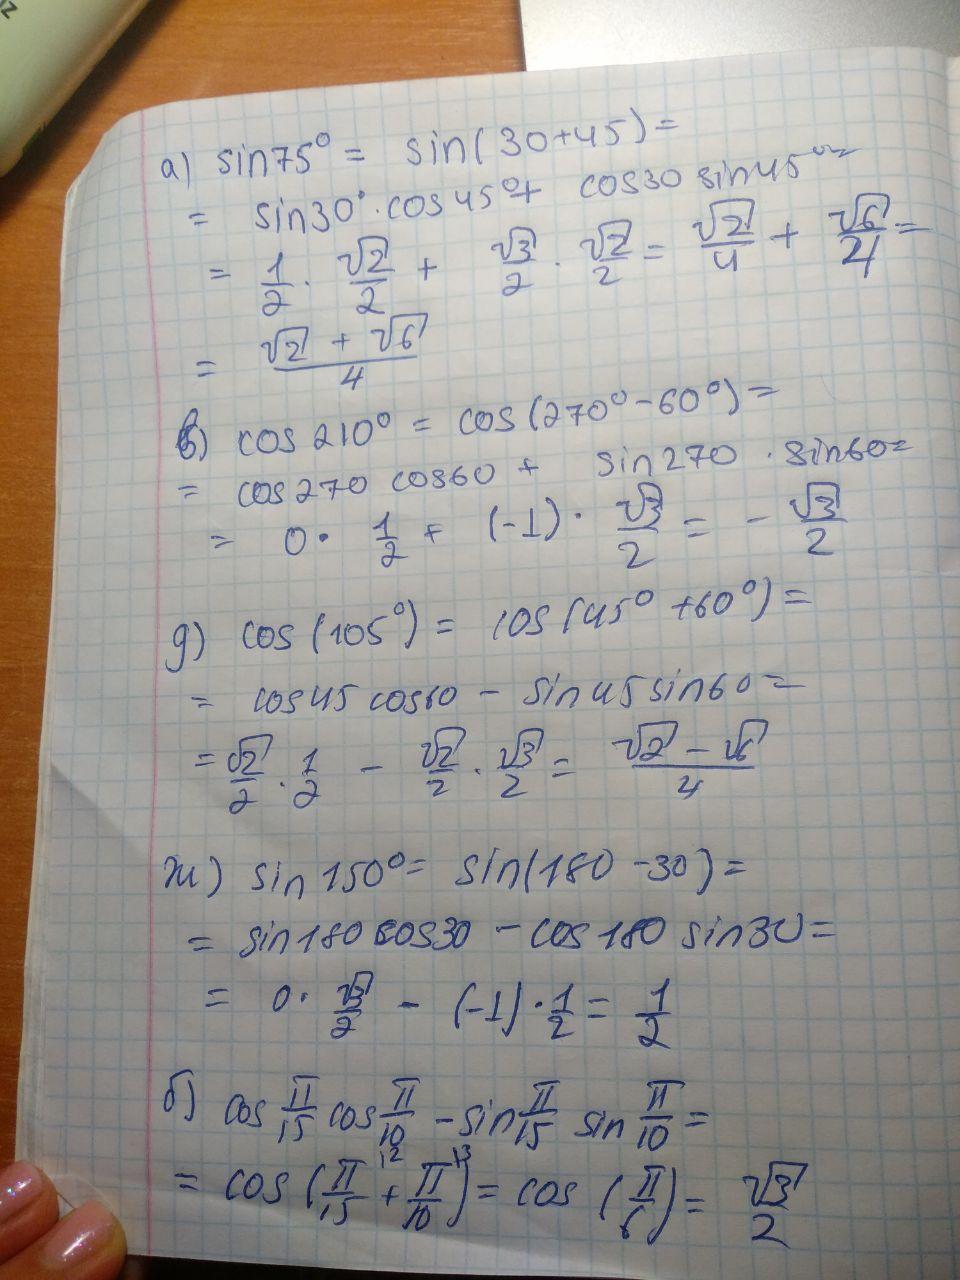 а) sin75° = sin(30+45) =
= sin30° · cos45° + cos30 sin45° =
= 1/2 · √2/2 + √3/2 · √2/2 = √2/4 + √6/4 =
= (√2 + √6)/4
в) cos210° = cos(270° - 60°) =
= cos270 cos60 + sin270 · sin60 =
= 0 · 1/2 + (-1) · √3/2 = - √3/2
д) cos(105°) = cos(45° + 60°) =
= cos45 cos60 - sin45 sin60 =
= √2/2 · 1/2 - √2/2 · √3/2 = (√2 - √6)/4
ж) sin150° = sin(180 - 30) =
= sin180 cos30 - cos180 sin30 =
= 0 · √3/2 - (-1) · 1/2 = 1/2
б) cos π/15 cos π/10 - sin π/15 sin π/10 =
= cos (π/15 \2 + π/10 \3) = cos (π/6) = √3/2